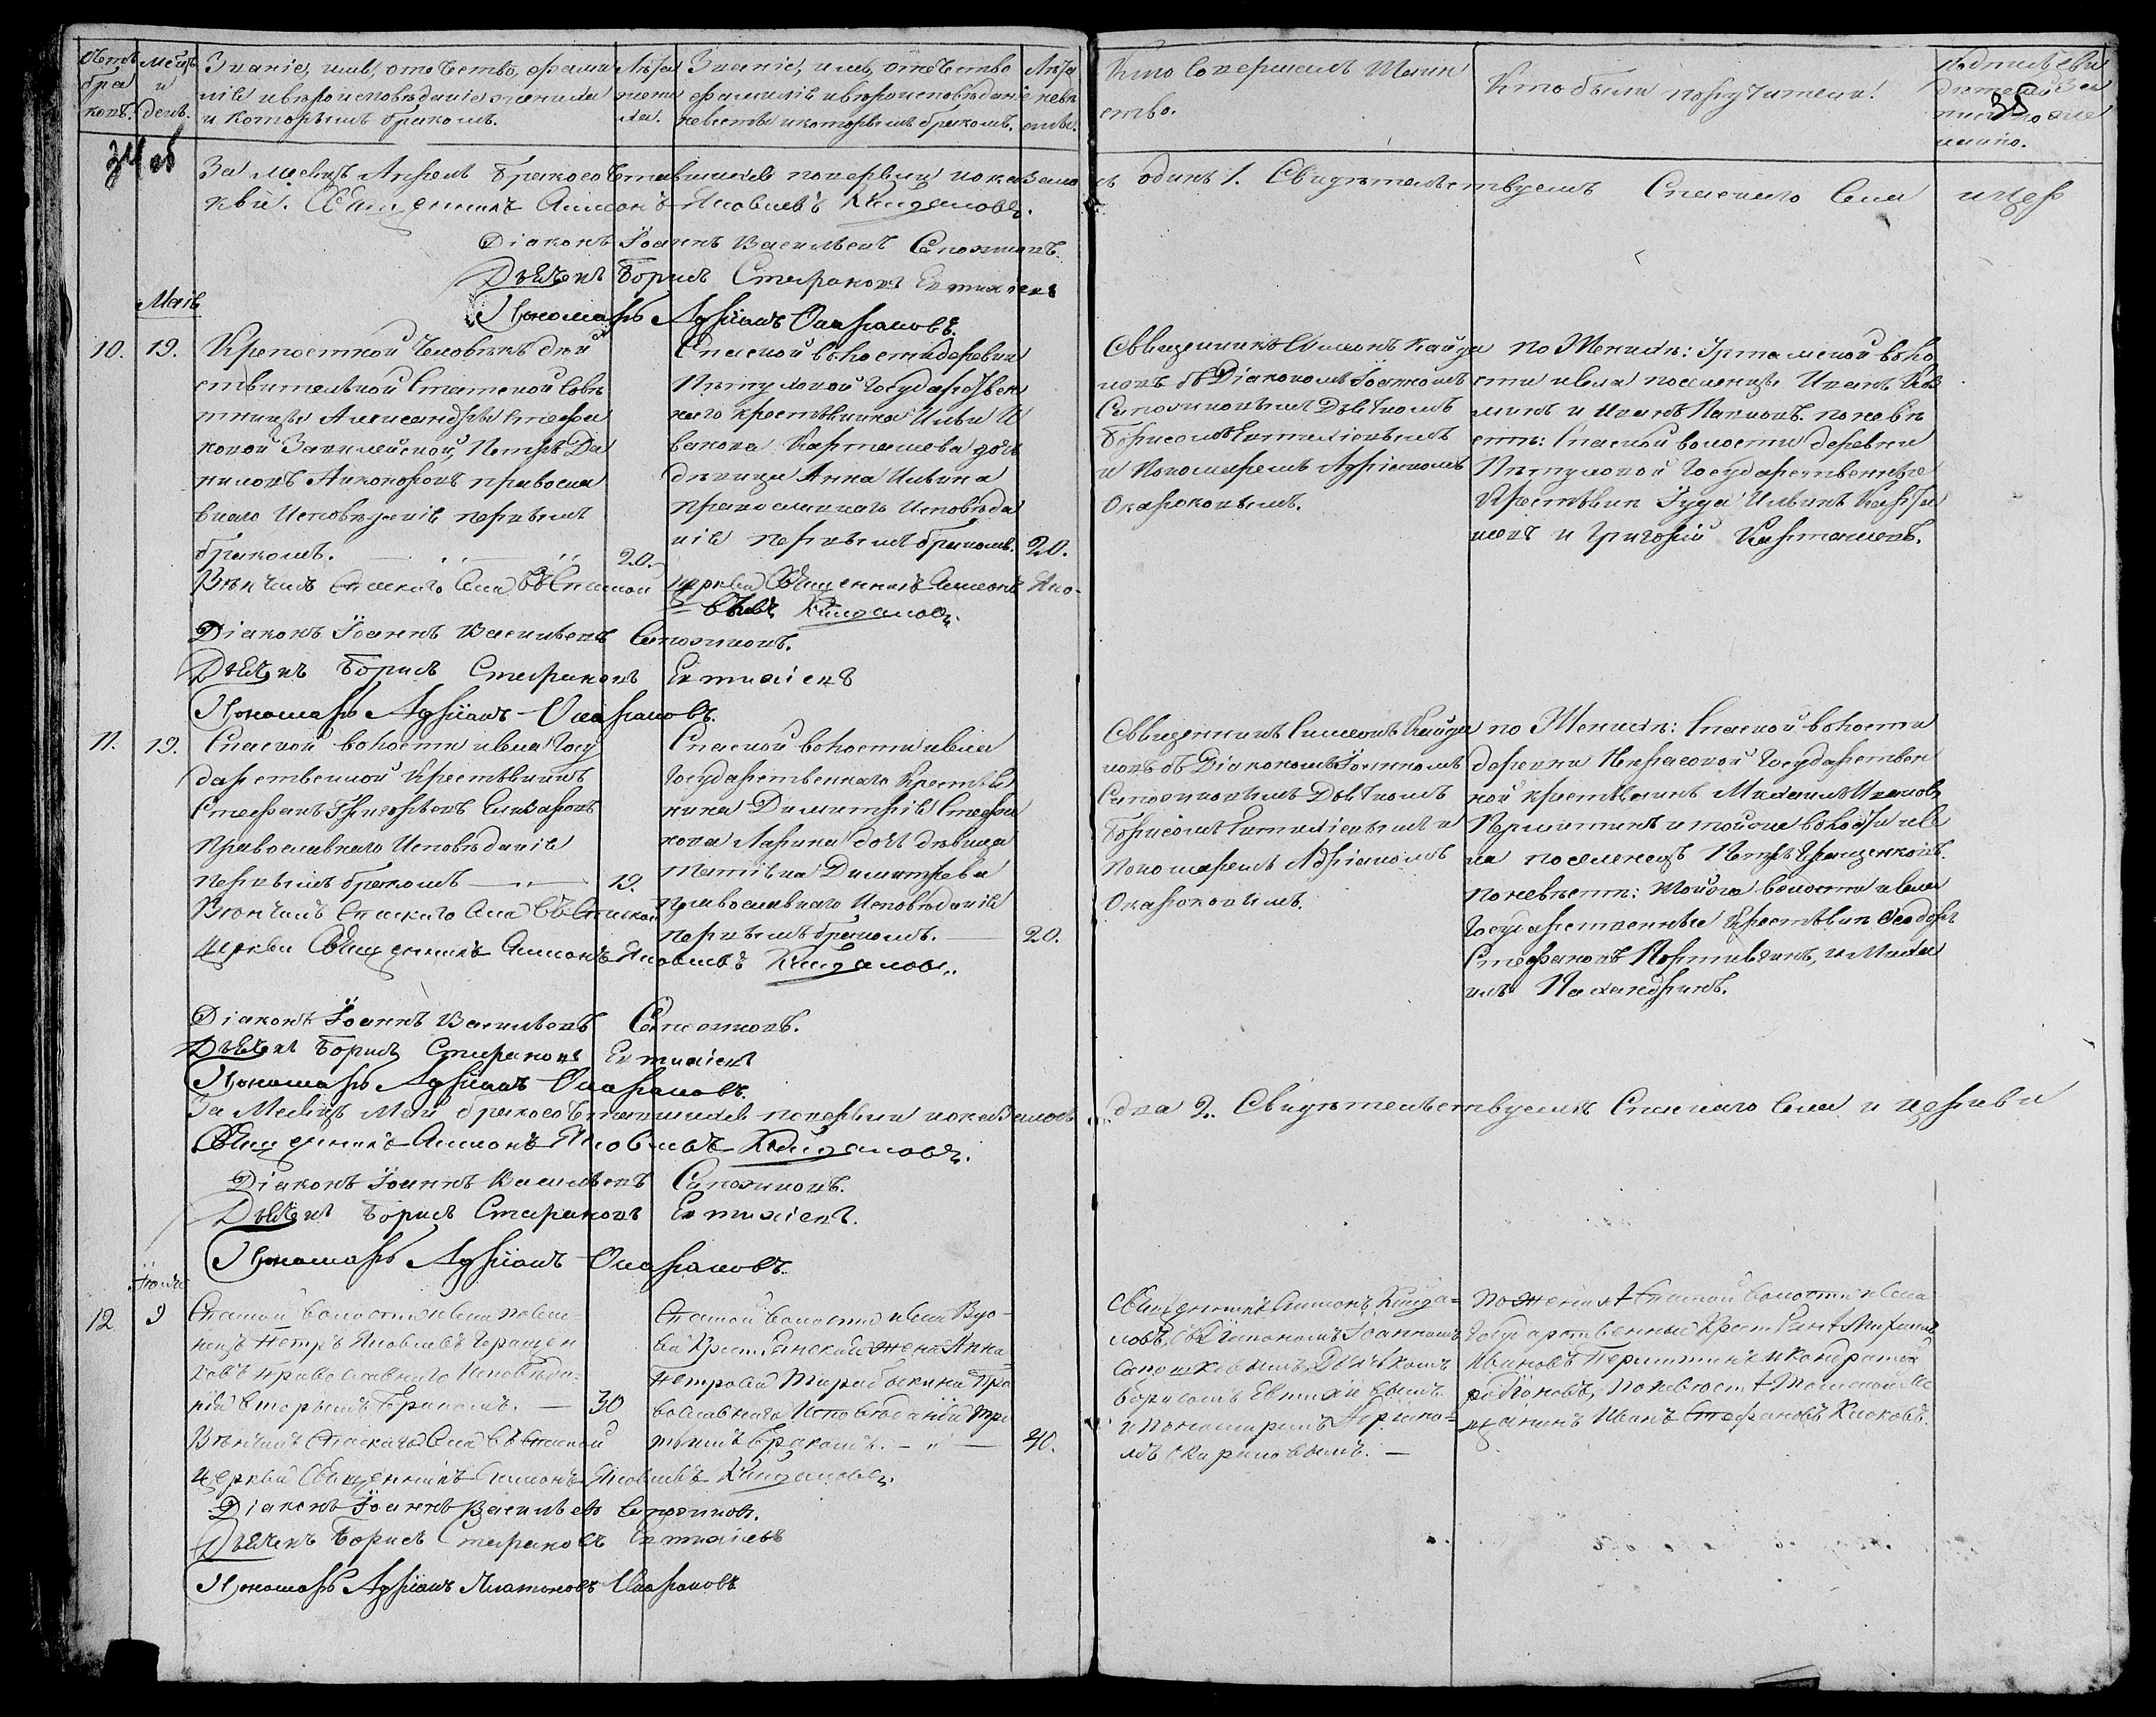 Счетъ бра ковъ.
Мѣсяцъ и день.
Званіе, имя, отечество, фами
лія и вѣроисповѣданіе жениха
и которымъ бракомъ.
Лѣта жени ха.
Званіе, имя, отечество
фамилія и вѣроисповѣданіе
невѣсты и которымъ бракомъ.
Лѣта невѣ сты.
Кто совершалъ Таин
ство.
Кто были поручители.
34 об
За мѣсяцъ Апрель бракосочетавшихся по церкви показано
одинъ 1. Свидѣтельствуемъ Спаскаго Села и цер
кви. Священникъ Симеонъ Яковлевъ Кайдаловъ.
Діаконъ Іоаннъ Васильевъ Сапожниковъ.
Дьячекъ Борисъ Стефановъ Евтихіевъ
Пономарь Адріанъ Окороковъ.
Маія
10. 19.
Крепостной человѣкъ дѣй
ствительной Статской Совѣ
тницы Александры Стефа
новой Закилейской, Петръ Да
ниловъ Никоноровъ правосла
внаго Исповѣданія первымъ
бракомъ. 20.
Спаской волости деревни
Пѣтуховой Государствен
наго крестьянина Ильи И
ванова Карташева дочь
дѣвица Анна Ильина
православнаго Исповѣда
нія первымъ бракомъ. 20.
Священникъ Симеонъ Кайда
ловъ съ Діакономъ Іоанномъ
Сапожниковымъ Дьячкомъ
Борисомъ Евтихіевымъ
и Пономаремъ Адріаномъ
Окороковымъ.
по Женихѣ: Уртамской воло
сти и села поселенцы Иванъ
и Иванъ по невѣ
стѣ: Спаской волости деревни
Пѣтуховой Государственные
Крестьяни Іуда Ильинъ Карта
шевъ и Григорій Карташевъ.
Вѣнчалъ Спаскаго Села въ Спаской церкви Священникъ Симеонъ Яко-
влевъ Кайдаловъ.
Діаконъ Іоаннъ Васильевъ Сапожниковъ.
Дьячекъ Борисъ Стефановъ Евтихіевъ
Пономарь Адріанъ Окороковъ.
11. 19.
Спаской волости и села Госу
дарственной Крестьянинъ
Стефанъ Григорьевъ Елизаровъ
Православнаго Исповѣданія
первымъ бракомъ 19.
Спаской волости и села
Государственнаго Крестья
нина Димитрія Стефа
нова Ларина дочь дѣвица
Татіяна Димитріева
Православнаго Исповѣданія
первымъ бракомъ. 20.
Священникъ Симеонъ Кайда
ловъ съ Діакономъ Іоанномъ
Сапожниковымъ Дьячкомъ
Борисомъ Евтихіевымъ и
Пономаремъ Адріаномъ
Окороковымъ.
по Женихѣ: Спаской волости
деревни Некрасовой Государствен
ной крестьянинъ Михаилъ Ивановъ
Перминтинъ и тойже волости и се
ла поселенецъ Петръ Геращенковъ.
по невѣстѣ: тойже волости и села
Государственные Крестьяни Ѳеодоръ
Стефановъ и Миха
илъ
Вѣнчалъ Спаскаго Села въ Спаской
церкви Священникъ Симеонъ Яковлевъ Кайдаловъ.
Діаконъ Іоаннъ Васильевъ Сапожниковъ.
Дьячекъ Борисъ Стефановъ Евтихіевъ
Пономарь Адріанъ Окороковъ.
За Месяцъ Май бракосочетавшихся по церкви показалось
два 2. Свидѣтельствуемъ Спаскаго Села и церкви
Священникъ Симеонъ Яковлевъ Кайдаловъ.
Діаконъ Іоаннъ Васильевъ Сапожниковъ.
Дьячекъ Борисъ Стефановъ Евтихіевъ.
Пономарь Адріанъ Окороковъ.
12 9
Спаской волости и села посѣле-
нецъ Петръ Яковлевъ Геращен
ковъ Православнаго Исповѣда-
нія вторымъ бракомъ. 30
Спаской волости и села Вдо-
ва Крестьянская жена Анна
Петрова Пра
вославнаго Исповѣданія тре
тьимъ бракомъ. 40.
Священникъ Симеонъ Кайда-
ловъ, съ Діакономъ Іоанномъ
Сапожниковымъ Дьячькомъ
Борисомъ Евтихіевымъ
и Пономаремъ Адріано-
мъ Окороковымъ.
По женихѣ Спаской волости и села
Государственные Крестьяни Михаилъ
Ивановъ Перминтинъ и Кондратей
по невѣстѣ Томской Мѣ
щанинъ Иванъ Стефановъ
Вѣнчалъ Спаскаго Села въ Спаской
церкви Священникъ Симеонъ Яковлевъ Кайдаловъ.
Діаконъ Іоаннъ Васильевъ Сапожниковъ.
Дьячекъ Борисъ Стефановъ Евтихіевъ
Пономарь Адріанъ Платоновъ Окороковъ